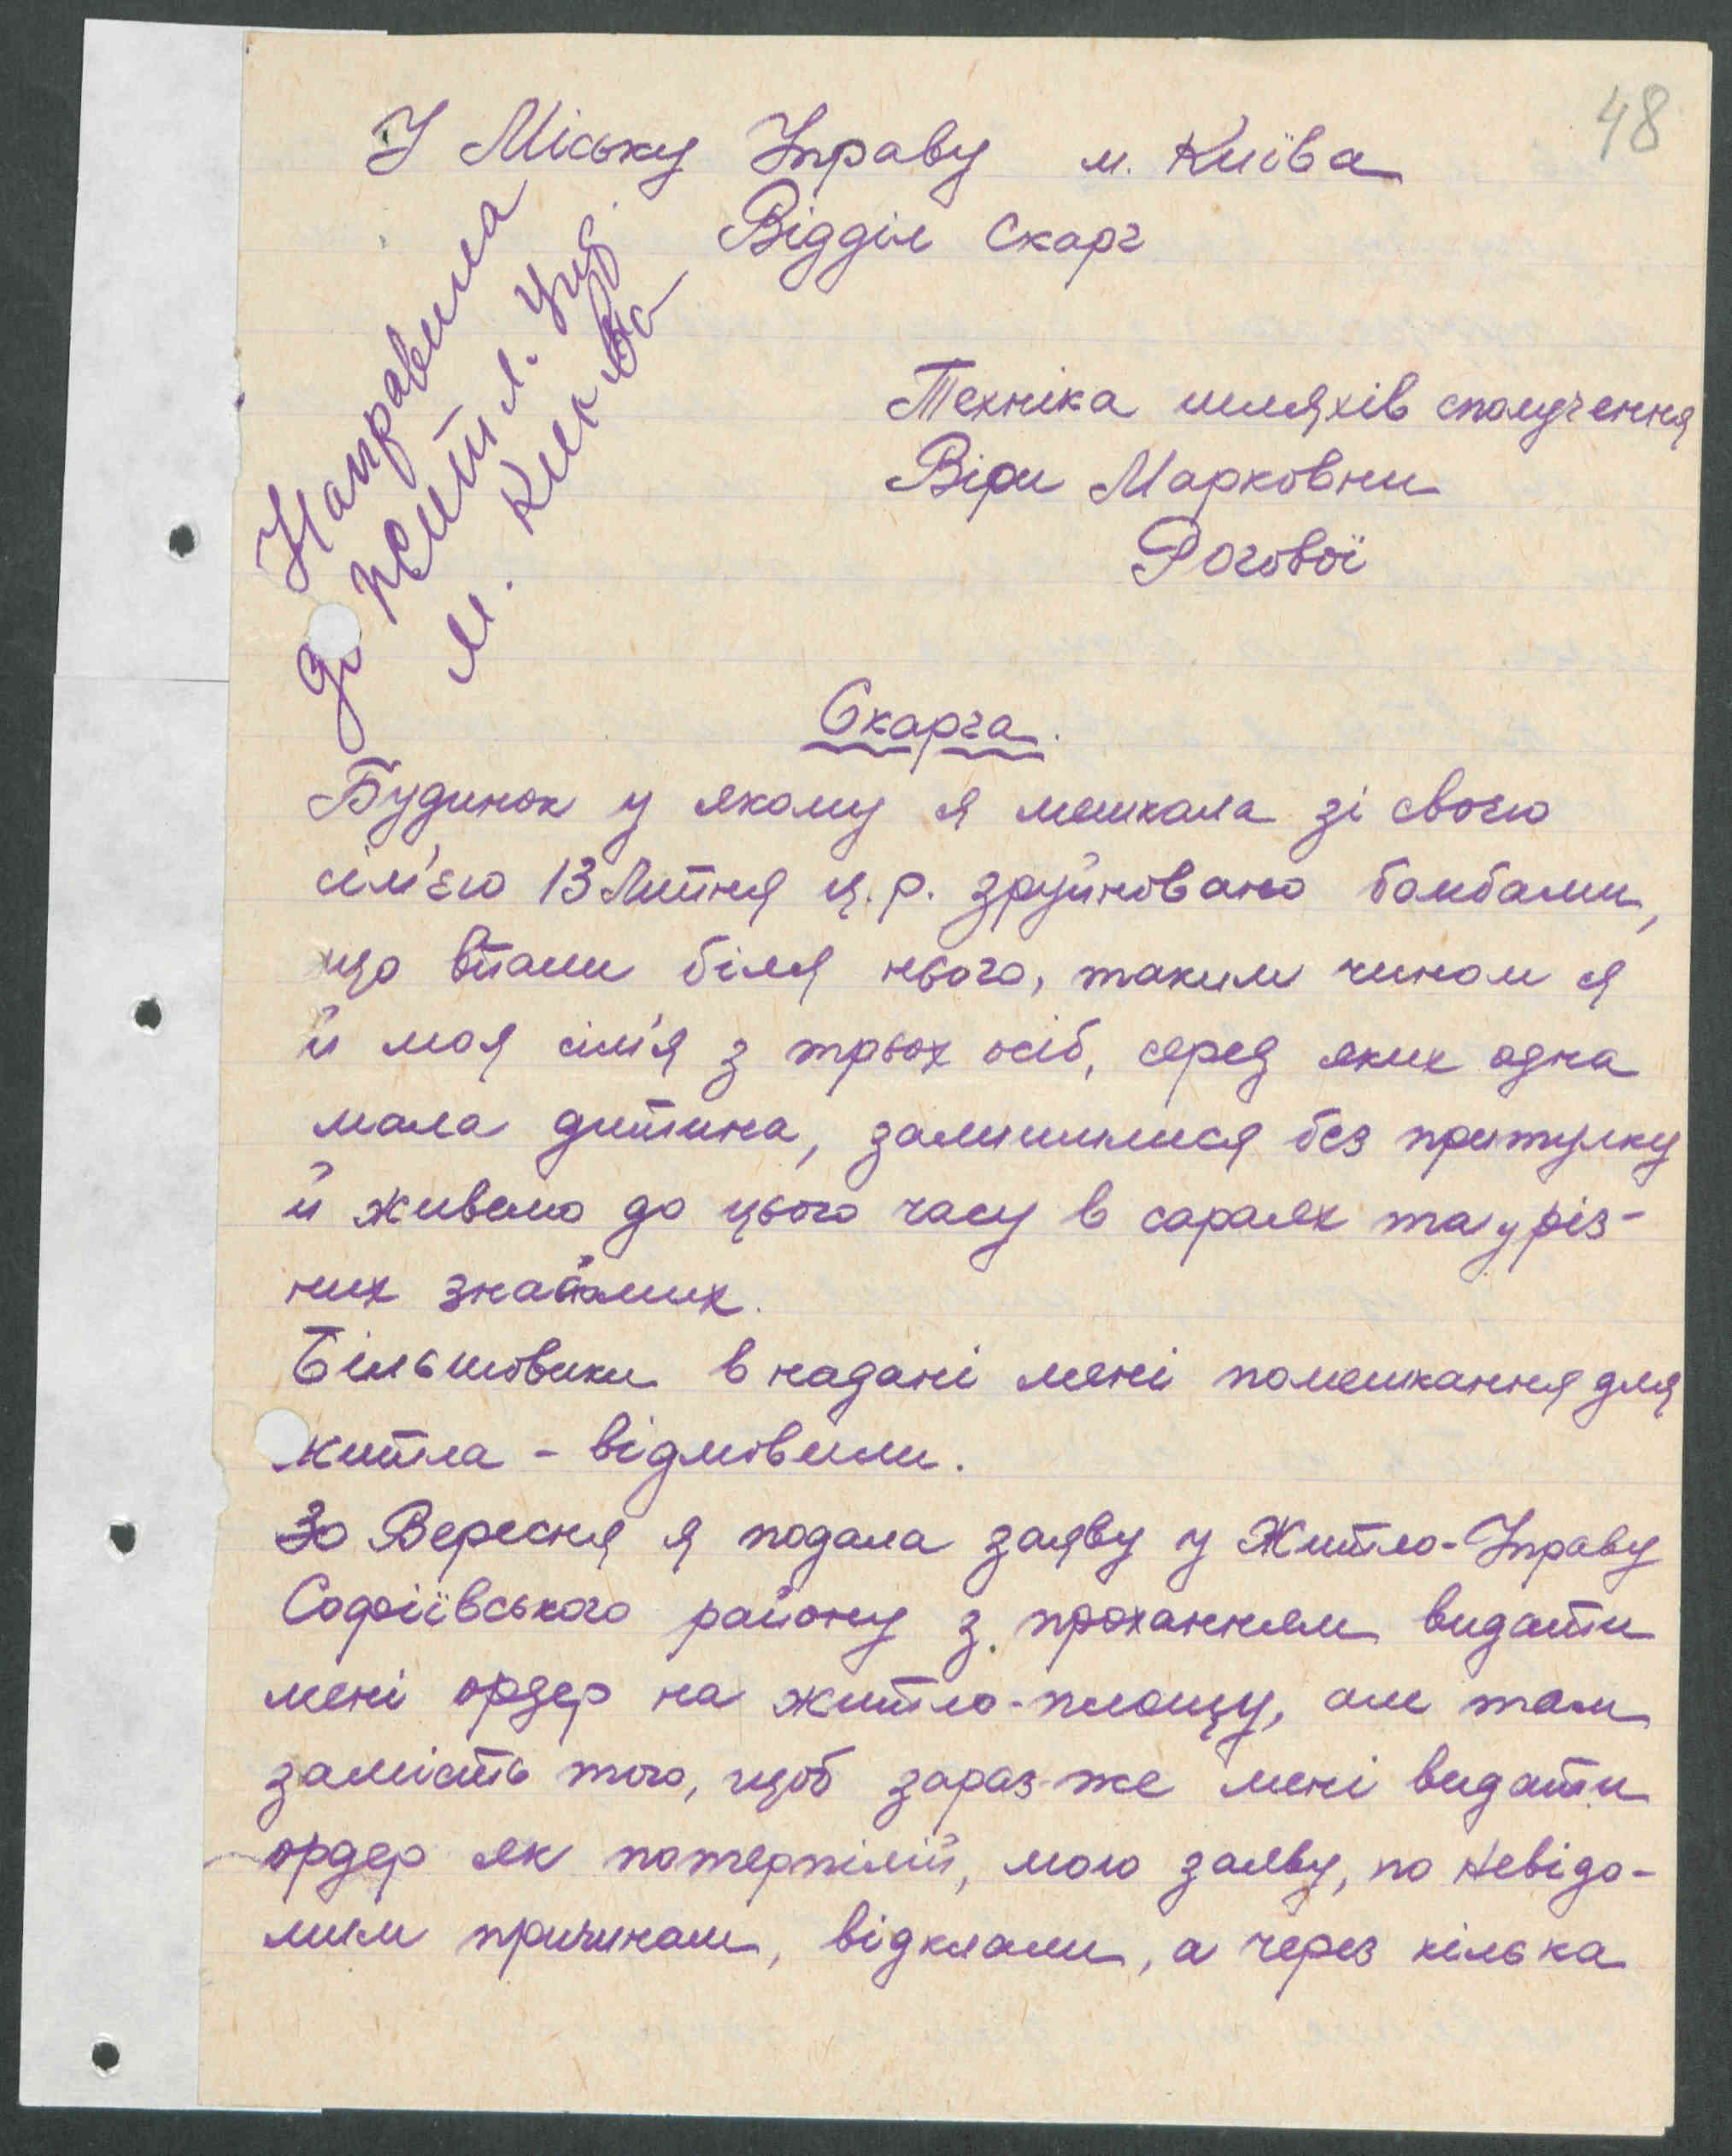 48
У Міську Управу м. Київа
Відділ Скарг
Направила
до житл. упр.
м. Києва
Техніка шляхів сполучення
Віри Марковни
Рогової
Скарга.
Будинок у якому я мешкала зі своєю
сім'єю 13 Липня ц.р. зруйновано бомбами,
що впали біля нього, таким чином я
й моя сім'я з трьох осіб, серед яких одна
мала дитина, залишилися без притулку
й живемо до цього часу в сараях та у різ-
них знайомих.
Більшовики в надані мені помешкання для
житла - відмовили.
30 Вересня я подала заяву у Житло-Управу
Софіївського району з проханням видати
мені ордер на житло-площу, але там
замість того, щоб зараз-же мені видати
ордер як потерпілій, мою заяву, по невідо-
мим причинам, відклали, а через кілька